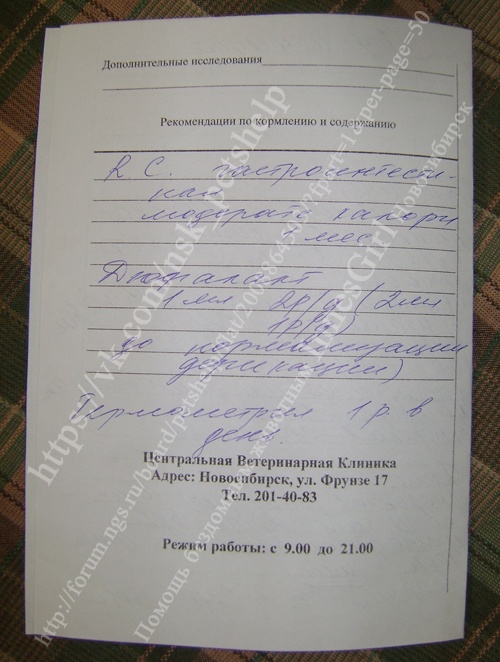 Дополнительные исследования
Рекомендации по кормлению и содержанию
R.C. гастроинтести-
нал
модерате калори
1 мес
Дюфалакт
1 мл 2р/д (2мл
1р/д)
до нормализации
дефекации)
Термометрия 1 р. в
день.
Центральная Ветеринарная Клиника
Адрес: Новосибирск, ул. Фрунзе 17
Тел. 201-40-83
Режим работы: с 9.00 до 21.00
https://vk.com/nsk_petshelp
Помощь бездомным животным
Новосибирск